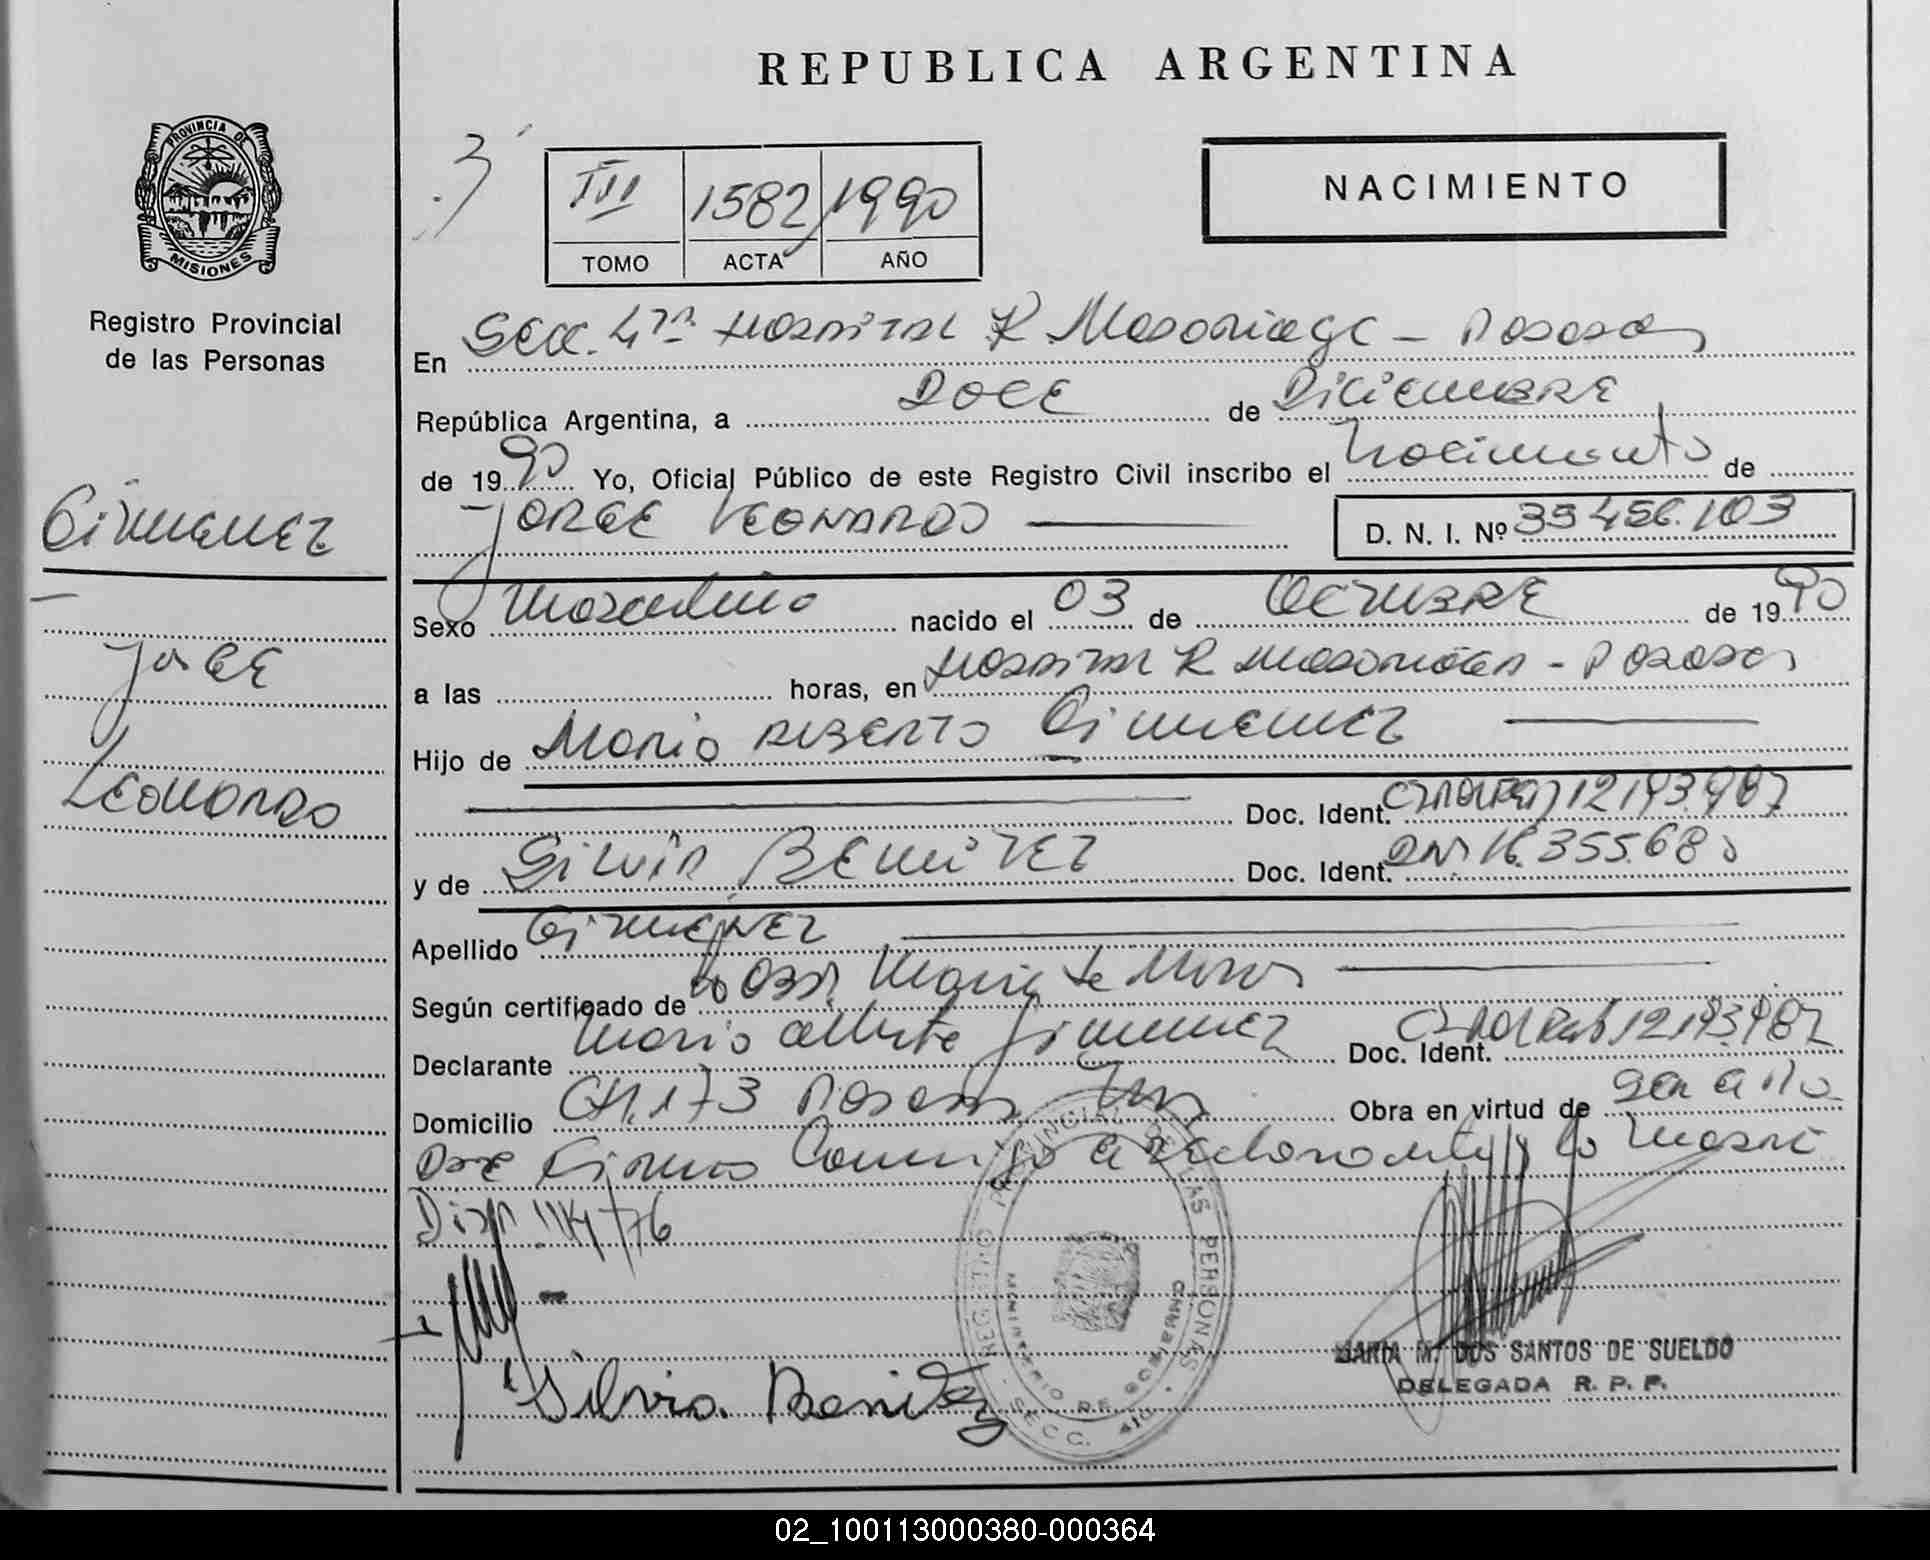 REPUBLICA ARGENTINA
PROVINCIA DE
MISIONES
Registro Provincial
de las Personas
III 1582 1990
TOMO ACTA AÑO
NACIMIENTO
En Secc. 4ta Hospital R Madariaga - Posadas
República Argentina, a DOCE de Diciembre
de 1990 Yo, Oficial Público de este Registro Civil inscribo el Nacimiento de
JORGE LEONARDO
D. N. I. Nº 35.456.103
Gimenez
Jorge
Leonardo
Sexo Masculino nacido el 03 de OCTUBRE de 1990
a las horas, en Hospital R Madariaga - Posadas
Hijo de Mario Alberto Gimenez
Doc. Ident. 12.143.987
y de Silvia Benitez Doc. Ident. DNI 16.355.680
Apellido Gimenez
Según certificado de Obst. Maria
Declarante Mario Alberto Gimenez Doc. Ident. 12.143.987
Domicilio CH.173 Posadas Mns Obra en virtud de
Firma Conmigo el declarante y la Madre
Disp.
Silvia. Benitez
REGISTRO PROVINCIAL DE LAS PERSONAS
MINISTERIO DE GOBIERNO
SECC. 4ta
MARIA M. DOS SANTOS DE SUELDO
DELEGADA R. P. P.
02_100113000380-000364